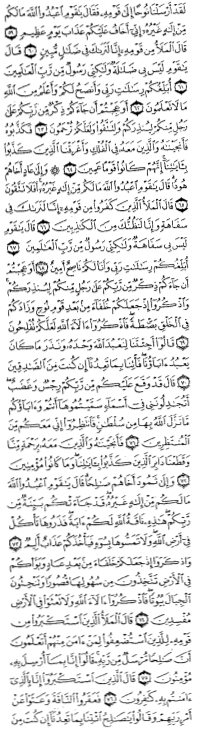 لَقَدْ أَرْسَلْنَا نُوحًا إِلَىٰ قَوْمِهِۦ فَقَالَ يَٰقَوْمِ ٱعْبُدُوا۟ ٱللَّهَ مَا لَكُم
مِّنْ إِلَٰهٍ غَيْرُهُۥٓ إِنِّىٓ أَخَافُ عَلَيْكُمْ عَذَابَ يَوْمٍ عَظِيمٍ ٥٩
قَالَ ٱلْمَلَأُ مِن قَوْمِهِۦٓ إِنَّا لَنَرَىٰكَ فِى ضَلَٰلٍ مُّبِينٍ ٦٠ قَالَ
يَٰقَوْمِ لَيْسَ بِى ضَلَٰلَةٌ وَلَٰكِنِّى رَسُولٌ مِّن رَّبِّ ٱلْعَٰلَمِينَ ٦١
أُبَلِّغُكُمْ رِسَٰلَٰتِ رَبِّى وَأَنصَحُ لَكُمْ وَأَعْلَمُ مِنَ ٱللَّهِ
مَا لَا تَعْلَمُونَ ٦٢ أَوَعَجِبْتُمْ أَن جَآءَكُمْ ذِكْرٌ مِّن رَّبِّكُمْ عَلَىٰ
رَجُلٍ مِّنكُمْ لِيُنذِرَكُمْ وَلِتَتَّقُوا۟ وَلَعَلَّكُمْ تُرْحَمُونَ ٦٣ فَكَذَّبُوهُ
فَأَنجَيْنَٰهُ وَٱلَّذِينَ مَعَهُۥ فِى ٱلْفُلْكِ وَأَغْرَقْنَا ٱلَّذِينَ كَذَّبُوا۟
بِـَٔايَٰتِنَآ إِنَّهُمْ كَانُوا۟ قَوْمًا عَمِينَ ٦٤ وَإِلَىٰ عَادٍ أَخَاهُمْ
هُودًا قَالَ يَٰقَوْمِ ٱعْبُدُوا۟ ٱللَّهَ مَا لَكُم مِّنْ إِلَٰهٍ غَيْرُهُۥٓ أَفَلَا تَتَّقُونَ
٦٥ قَالَ ٱلْمَلَأُ ٱلَّذِينَ كَفَرُوا۟ مِن قَوْمِهِۦٓ إِنَّا لَنَرَىٰكَ فِى
سَفَاهَةٍ وَإِنَّا لَنَظُنُّكَ مِنَ ٱلْكَٰذِبِينَ ٦٦ قَالَ يَٰقَوْمِ
لَيْسَ بِى سَفَاهَةٌ وَلَٰكِنِّى رَسُولٌ مِّن رَّبِّ ٱلْعَٰلَمِينَ ٦٧
أُبَلِّغُكُمْ رِسَٰلَٰتِ رَبِّى وَأَنَا۠ لَكُمْ نَاصِحٌ أَمِينٌ ٦٨ أَوَعَجِبْتُمْ
أَن جَآءَكُمْ ذِكْرٌ مِّن رَّبِّكُمْ عَلَىٰ رَجُلٍ مِّنكُمْ لِيُنذِرَكُمْ
وَٱذْكُرُوٓا۟ إِذْ جَعَلَكُمْ خُلَفَآءَ مِنۢ بَعْدِ قَوْمِ نُوحٍ وَزَادَكُمْ
فِى ٱلْخَلْقِ بَصْۜطَةً فَٱذْكُرُوٓا۟ ءَالَآءَ ٱللَّهِ لَعَلَّكُمْ تُفْلِحُونَ
٦٩ قَالُوٓا۟ أَجِئْتَنَا لِنَعْبُدَ ٱللَّهَ وَحْدَهُۥ وَنَذَرَ مَا كَانَ
يَعْبُدُ ءَابَآؤُنَا فَأْتِنَا بِمَا تَعِدُنَآ إِن كُنتَ مِنَ ٱلصَّٰدِقِينَ
٧٠ قَالَ قَدْ وَقَعَ عَلَيْكُم مِّن رَّبِّكُمْ رِجْسٌ وَغَضَبٌ
أَتُجَٰدِلُونَنِى فِىٓ أَسْمَآءٍ سَمَّيْتُمُوهَآ أَنتُمْ وَءَابَآؤُكُم
مَّا نَزَّلَ ٱللَّهُ بِهَا مِن سُلْطَٰنٍ فَٱنتَظِرُوٓا۟ إِنِّى مَعَكُم مِّنَ
ٱلْمُنتَظِرِينَ ٧١ فَأَنجَيْنَٰهُ وَٱلَّذِينَ مَعَهُۥ بِرَحْمَةٍ مِّنَّا
وَقَطَعْنَا دَابِرَ ٱلَّذِينَ كَذَّبُوا۟ بِـَٔايَٰتِنَا وَمَا كَانُوا۟ مُؤْمِنِينَ
٧٢ وَإِلَىٰ ثَمُودَ أَخَاهُمْ صَٰلِحًا قَالَ يَٰقَوْمِ ٱعْبُدُوا۟ ٱللَّهَ
مَا لَكُم مِّنْ إِلَٰهٍ غَيْرُهُۥ قَدْ جَآءَتْكُم بَيِّنَةٌ مِّن
رَّبِّكُمْ هَٰذِهِۦ نَاقَةُ ٱللَّهِ لَكُمْ ءَايَةً فَذَرُوهَا تَأْكُلْ
فِىٓ أَرْضِ ٱللَّهِ وَلَا تَمَسُّوهَا بِسُوٓءٍ فَيَأْخُذَكُمْ عَذَابٌ أَلِيمٌ ٧٣
وَٱذْكُرُوٓا۟ إِذْ جَعَلَكُمْ خُلَفَآءَ مِنۢ بَعْدِ عَادٍ وَبَوَّأَكُمْ
فِى ٱلْأَرْضِ تَتَّخِذُونَ مِن سُهُولِهَا قُصُورًا وَتَنْحِتُونَ
ٱلْجِبَالَ بُيُوتًا فَٱذْكُرُوٓا۟ ءَالَآءَ ٱللَّهِ وَلَا تَعْثَوْا۟ فِى ٱلْأَرْضِ
مُفْسِدِينَ ٧٤ قَالَ ٱلْمَلَأُ ٱلَّذِينَ ٱسْتَكْبَرُوا۟ مِن
قَوْمِهِۦ لِلَّذِينَ ٱسْتُضْعِفُوا۟ لِمَنْ ءَامَنَ مِنْهُمْ أَتَعْلَمُونَ
أَنَّ صَٰلِحًا مُّرْسَلٌ مِّن رَّبِّهِۦ قَالُوٓا۟ إِنَّا بِمَآ أُرْسِلَ بِهِۦ
مُؤْمِنُونَ ٧٥ قَالَ ٱلَّذِينَ ٱسْتَكْبَرُوٓا۟ إِنَّا بِٱلَّذِىٓ
ءَامَنتُم بِهِۦ كَٰفِرُونَ ٧٦ فَعَقَرُوا۟ ٱلنَّاقَةَ وَعَتَوْا۟ عَنْ
أَمْرِ رَبِّهِمْ وَقَالُوا۟ يَٰصَٰلِحُ ٱئْتِنَا بِمَا تَعِدُنَآ إِن كُنتَ مِنَ